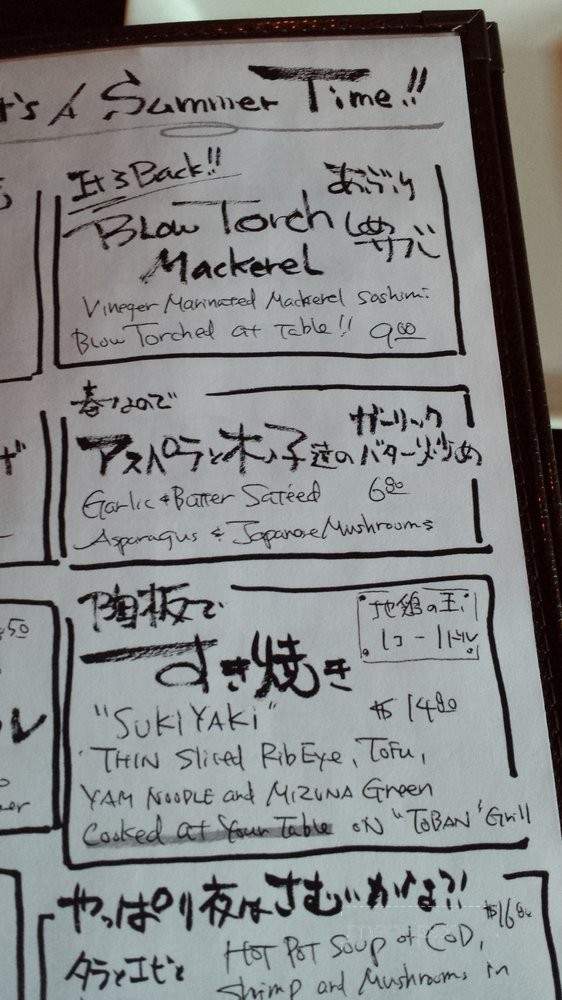 t's A Summer Time!!
It's Back!!
Blow Torch
Mackerel
あぶり
しめ
サバ
Vineger Marinated Mackerel Sashimi
Blow Torched at Table!! 9.00
春なので
ガーリック
アスパラと木ノ子達のバター炒め
Garlic & Butter Satéed 6.80
Asparagus & Japanese Mushrooms
陶板で
すき焼き
地鶏の玉子
1コ - 1ドル
"SUKIYAKI" $14.80
THIN Sliced RibEye, Tofu,
YAM NOODLE and MIZUNA Green
Cooked at Your Table ON "TOBAN" Grill
やっぱり夜はさむいわよね?!
$16.80
タラとエビと
HOT POT Soup of COD,
Shrimp and Mushrooms in
.50